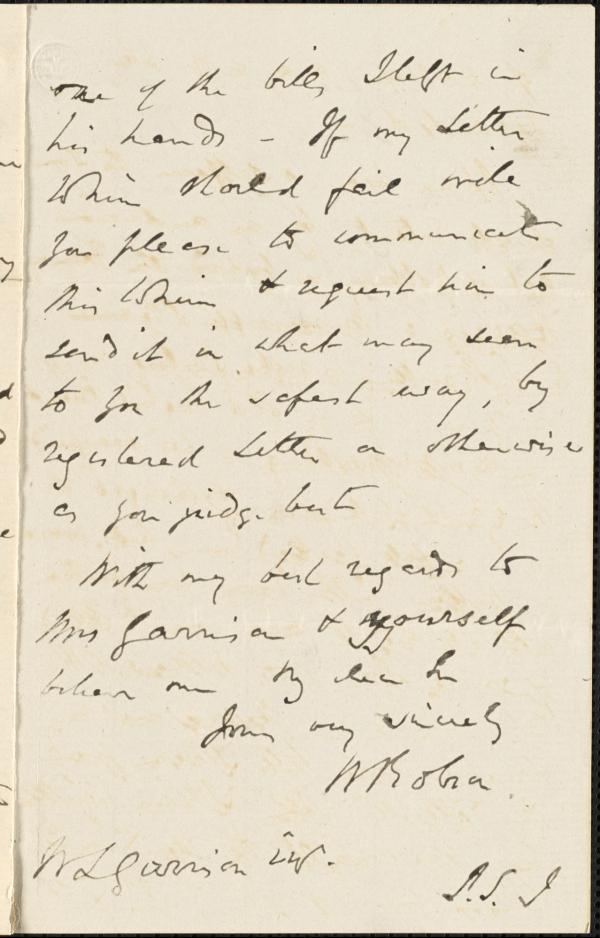 one of the bills I left in
his hands - If my Letter
Whim should fail wile
you please to communicate
this Whim & request him to
send it in what may seem
to you the safest way, by
registered Letter or otherwise
as you judge best
With my best regards to
Mrs Garrison & yourself
believe me My dear Sir
Yours very sincerely
W Robson
W L Garrison Esq.
P.S. I